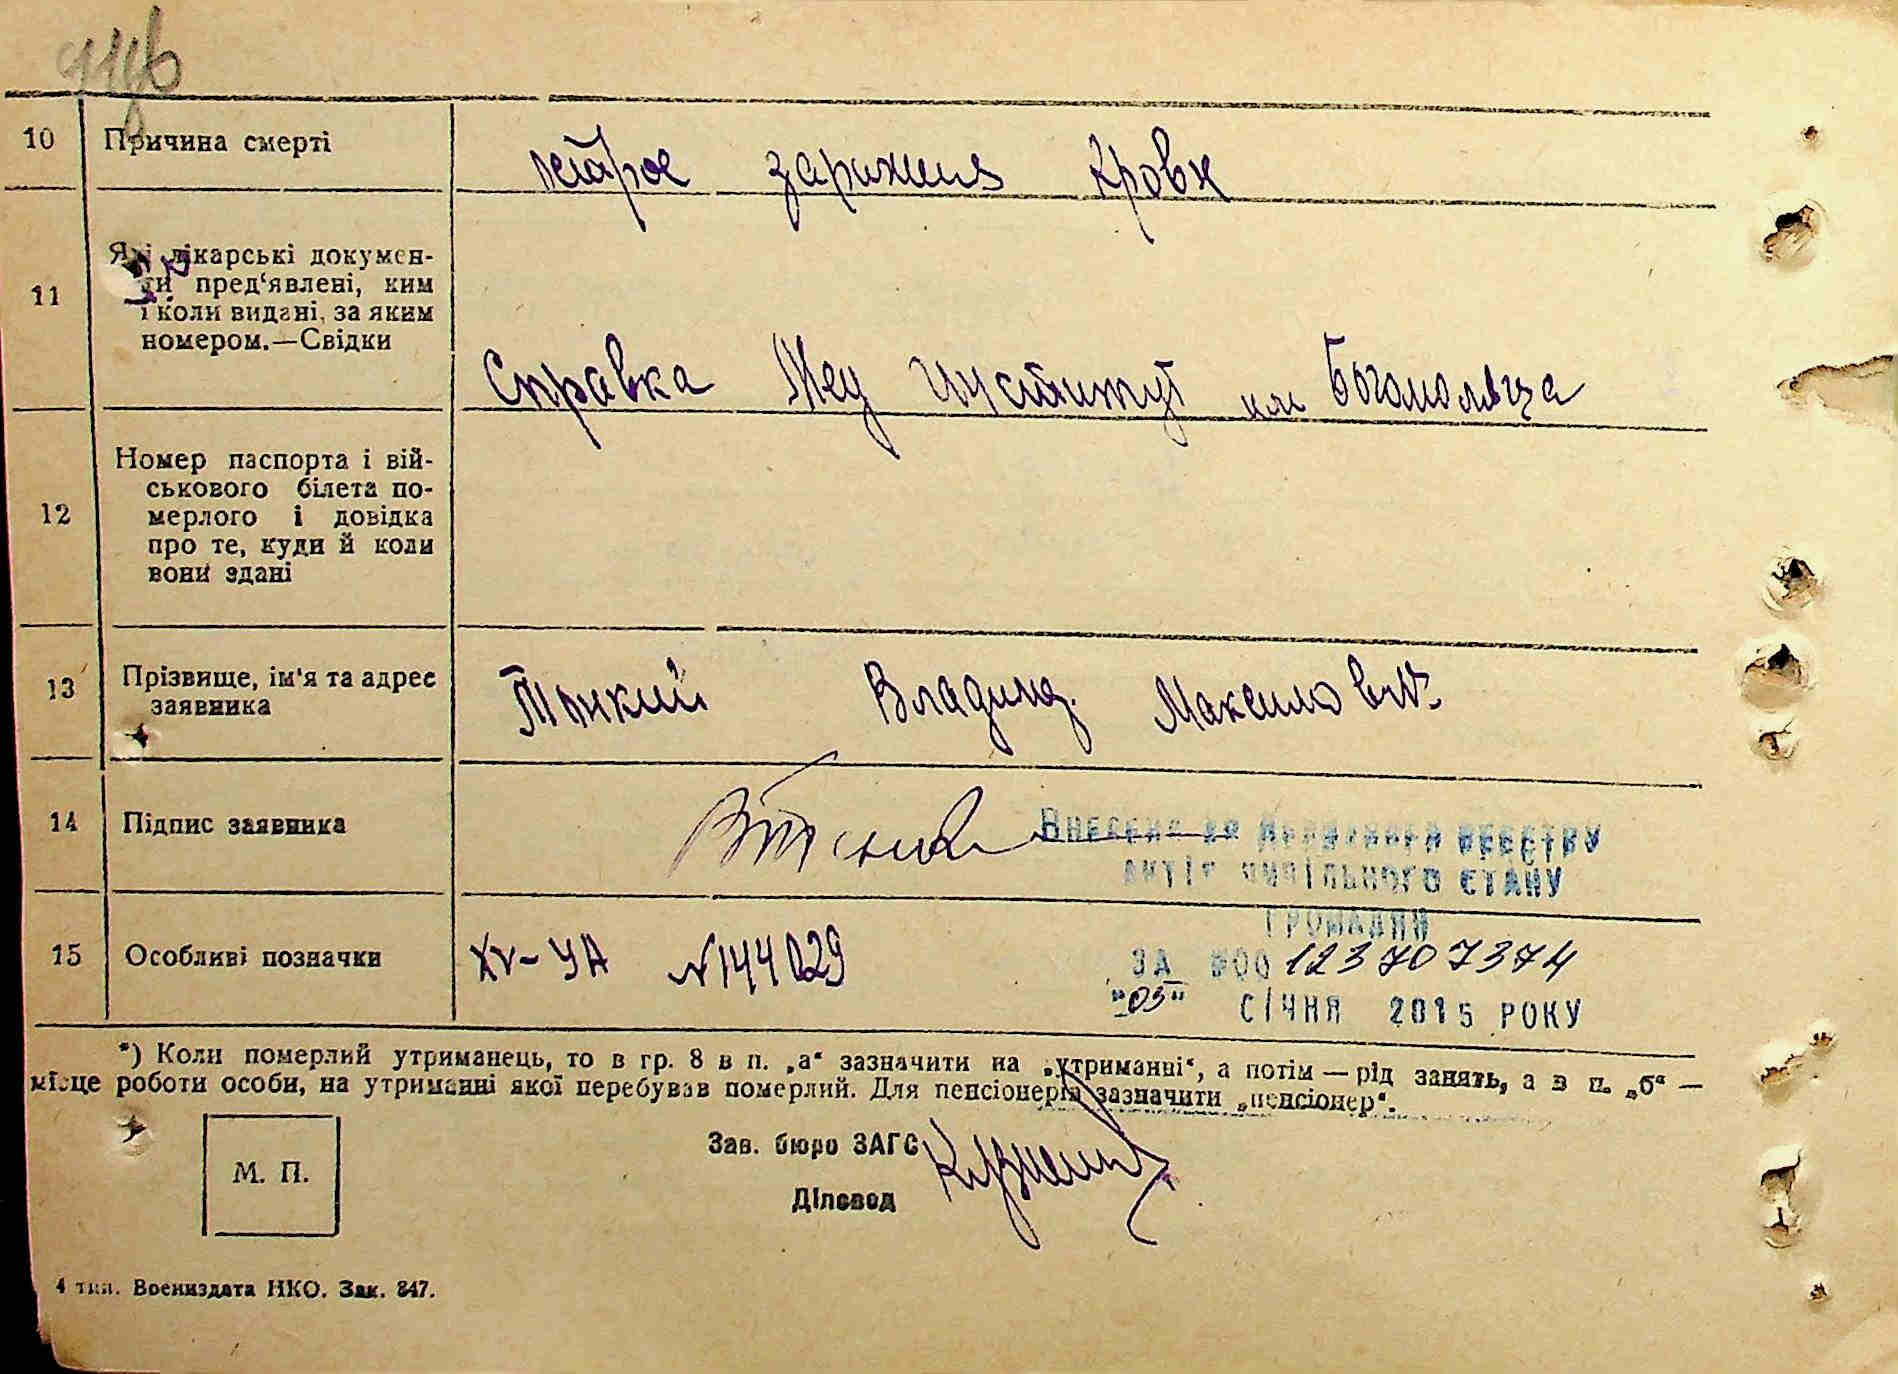 10 Причина смерті
зарожения крови
11 Які лікарські докумен-
ти пред'явлені, ким
і коли видані, за яким
номером.—Свідки
Справка Мед Институт им Богомольца
12 Номер паспорта і вій-
ськового білета по-
мерлого і довідка
про те, куди й коли
вони здані
13 Прізвище, ім'я та адрес
заявника
Владимир Максимович
14 Підпис заявника
Внесено до Державного реєстру
актів цивільного стану
громадян
15 Особливі позначки
XV-УА №144029
за №00123707374
"05" січня 2015 року
*) Коли померлий утриманець, то в гр. 8 в п. „а“ зазначити на „утриманні“, а потім — рід занять, а в п. „б“ —
місце роботи особи, на утриманні якої перебував померлий. Для пенсіонерів зазначити „пенсіонер“.
Зав. бюро ЗАГС
М. П.
Діловод
4 тип. Воениздата НКО. Зак. 847.